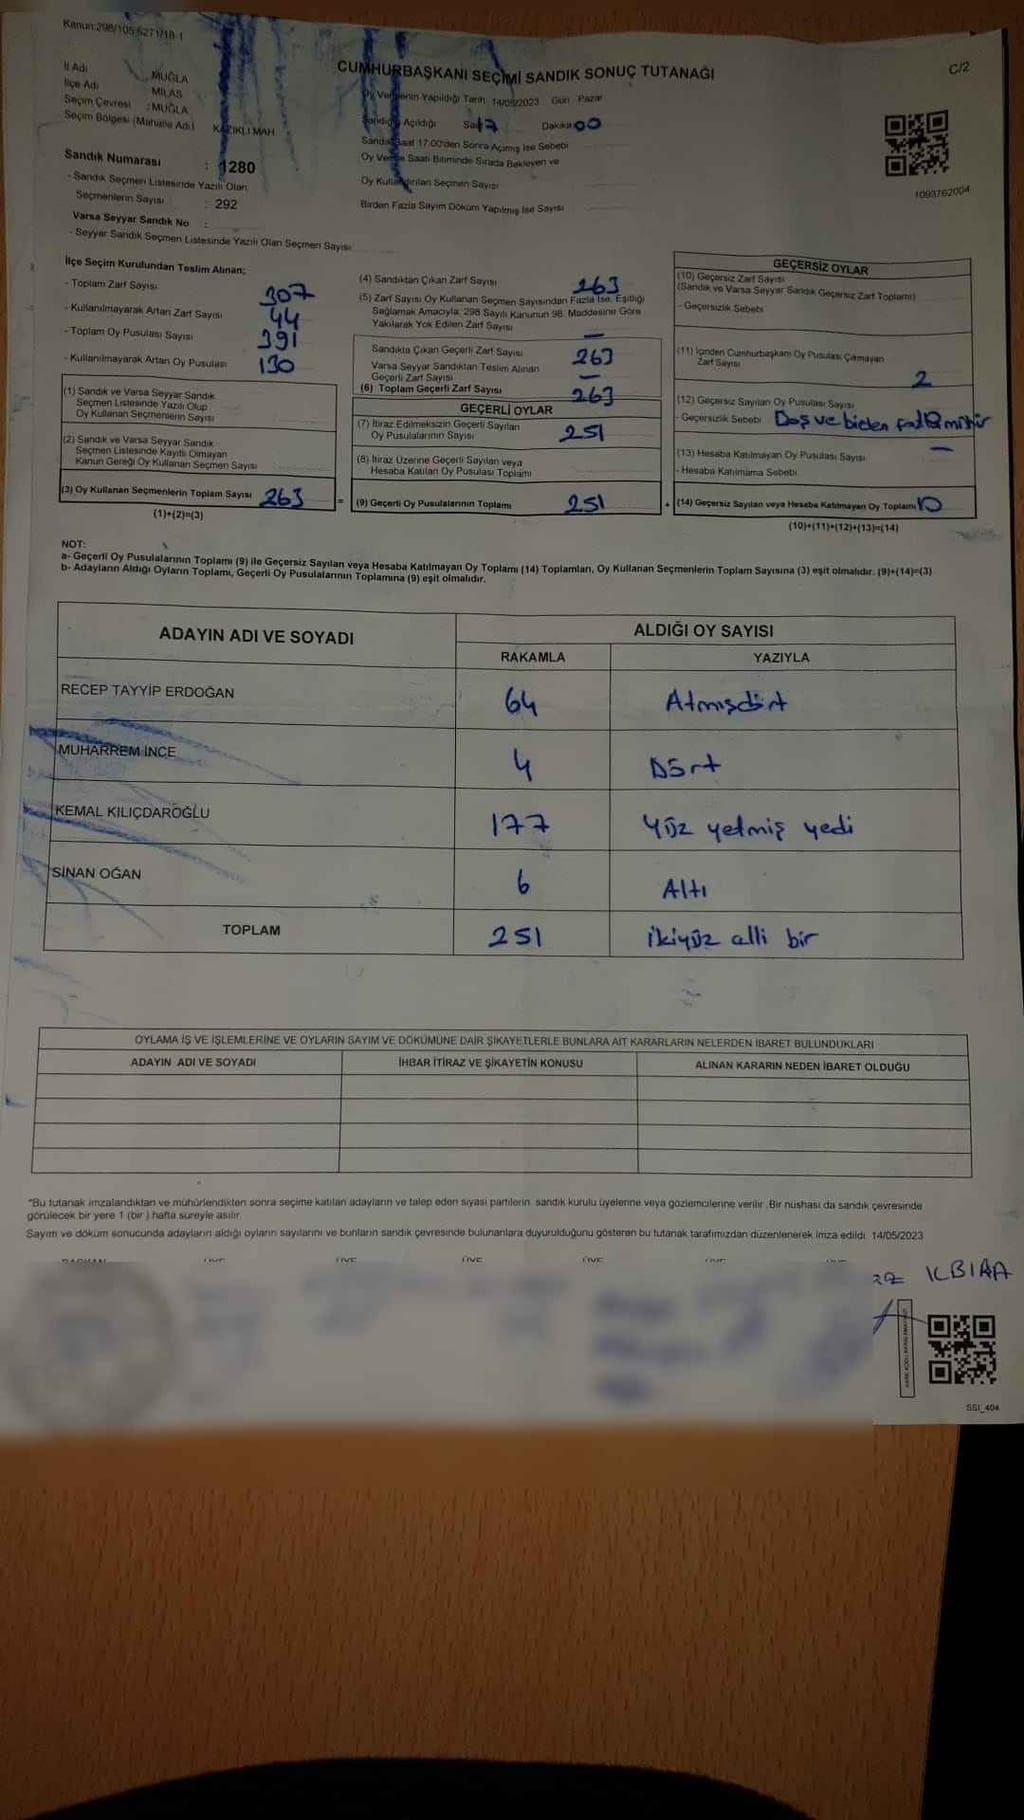 Kanun:298/105,6271/18-1
CUMHURBAŞKANI SEÇİMİ SANDIK SONUÇ TUTANAĞI
C/2
İl Adı MUĞLA
İlçe Adı MİLAS
Seçim Çevresi : MUĞLA
Seçim Bölgesi (Mahalle Adı) KAZIKLI MAH.
Sandık Numarası : 1280
- Sandık Seçmen Listesinde Yazılı Olan
Seçmenlerin Sayısı : 292
Varsa Seyyar Sandık No :
- Seyyar Sandık Seçmen Listesinde Yazılı Olan Seçmen Sayısı
Oy Vermenin Yapıldığı Tarih 14/05/2023 Gün Pazar
Sandığın Açıldığı Saat 17 Dakika 00
Sandık Saat 17:00'den Sonra Açılmış İse Sebebi
Oy Verme Saati Bitiminde Sırada Bekleyen ve
Oy Kullandırılan Seçmen Sayısı
Birden Fazla Sayım Döküm Yapılmış İse Sayısı
1093762004
İlçe Seçim Kurulundan Teslim Alınan;
- Toplam Zarf Sayısı 307
- Kullanılmayarak Artan Zarf Sayısı 44
- Toplam Oy Pusulası Sayısı 391
- Kullanılmayarak Artan Oy Pusulası 130
(1) Sandık ve Varsa Seyyar Sandık
Seçmen Listesinde Yazılı Olup
Oy Kullanan Seçmenlerin Sayısı
(2) Sandık ve Varsa Seyyar Sandık
Seçmen Listesinde Kayıtlı Olmayan
Kanun Gereği Oy Kullanan Seçmen Sayısı
(3) Oy Kullanan Seçmenlerin Toplam Sayısı 263
(1)+(2)=(3)
(4) Sandıktan Çıkan Zarf Sayısı 263
(5) Zarf Sayısı Oy Kullanan Seçmen Sayısından Fazla İse, Eşitliği
Sağlamak Amacıyla, 298 Sayılı Kanunun 98. Maddesine Göre
Yakılarak Yok Edilen Zarf Sayısı —
Sandıkta Çıkan Geçerli Zarf Sayısı 263
Varsa Seyyar Sandıktan Teslim Alınan
Geçerli Zarf Sayısı —
(6) Toplam Geçerli Zarf Sayısı 263
GEÇERLİ OYLAR
(7) İtiraz Edilmeksizin Geçerli Sayılan
Oy Pusulalarının Sayısı 251
(8) İtiraz Üzerine Geçerli Sayılan veya
Hesaba Katılan Oy Pusulası Toplamı
= (9) Geçerli Oy Pusulalarının Toplamı 251
GEÇERSİZ OYLAR
(10) Geçersiz Zarf Sayısı
(Sandık ve Varsa Seyyar Sandık Geçersiz Zarf Toplamı)
- Geçersizlik Sebebi
(11) İçinden Cumhurbaşkanı Oy Pusulası Çıkmayan
Zarf Sayısı 2
(12) Geçersiz Sayılan Oy Pusulası Sayısı
- Geçersizlik Sebebi
(13) Hesaba Katılmayan Oy Pusulası Sayısı —
- Hesaba Katılmama Sebebi
+ (14) Geçersiz Sayılan veya Hesaba Katılmayan Oy Toplamı 10
(10)+(11)+(12)+(13)=(14)
NOT:
a- Geçerli Oy Pusulalarının Toplamı (9) ile Geçersiz Sayılan veya Hesaba Katılmayan Oy Toplamı (14) Toplamları, Oy Kullanan Seçmenlerin Toplam Sayısına (3) eşit olmalıdır. (9)+(14)=(3)
b- Adayların Aldığı Oyların Toplamı, Geçerli Oy Pusulalarının Toplamına (9) eşit olmalıdır.
ADAYIN ADI VE SOYADI ALDIĞI OY SAYISI
RAKAMLA YAZIYLA
RECEP TAYYİP ERDOĞAN 64 Atmışdört
MUHARREM İNCE 4 Dört
KEMAL KILIÇDAROĞLU 177 Yüz yetmiş yedi
SİNAN OĞAN 6 Altı
TOPLAM 251 ikiyüz elli bir
OYLAMA İŞ VE İŞLEMLERİNE VE OYLARIN SAYIM VE DÖKÜMÜNE DAİR ŞİKAYETLERLE BUNLARA AİT KARARLARIN NELERDEN İBARET BULUNDUKLARI
ADAYIN ADI VE SOYADI İHBAR İTİRAZ VE ŞİKAYETİN KONUSU ALINAN KARARIN NEDEN İBARET OLDUĞU
*Bu tutanak imzalandıktan ve mühürlendikten sonra seçime katılan adayların ve talep eden siyasi partilerin sandık kurulu üyelerine veya gözlemcilerine verilir. Bir nüshası da sandık çevresinde
görülecek bir yere 1 (bir) hafta süreyle asılır.
Sayım ve döküm sonucunda adayların aldığı oyların sayılarını ve bunların sandık çevresinde bulunanlara duyurulduğunu gösteren bu tutanak tarafımızdan düzenlenerek imza edildi. 14/05/2023
BAŞKAN ÜYE ÜYE ÜYE ÜYE ÜYE ÜYE
SSI_404